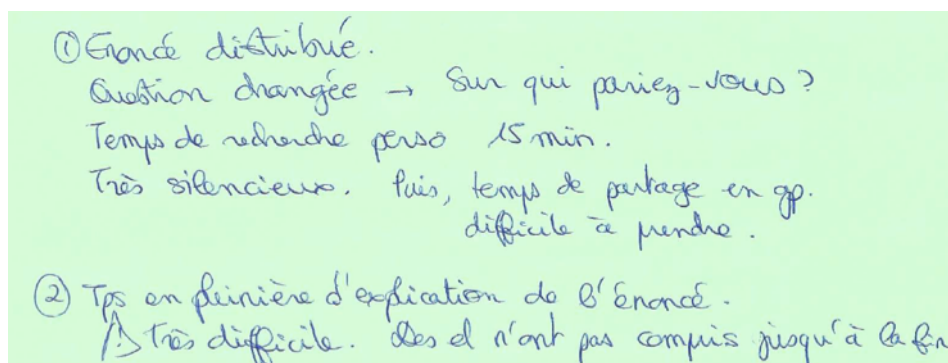 ① Enoncé distribué.
Question changée → Sur qui pariez-vous ?
Temps de recherche perso 15 min.
Très silencieux. Puis, temps de partage en gp.
difficile à prendre.
② Tps en pleinière d'explication de l'énoncé.
⚠ Très difficile. des el n'ont pas compis jusqu'à la fin